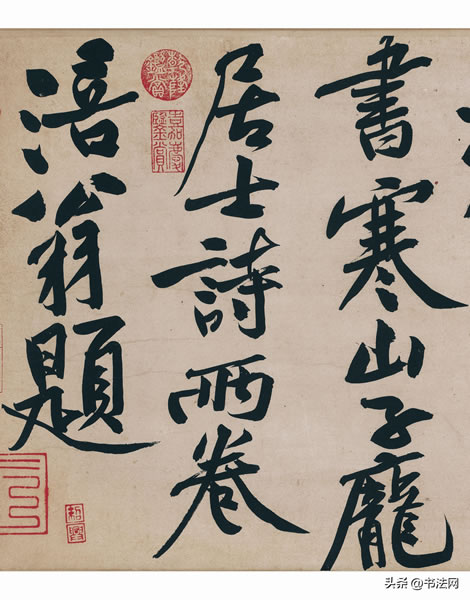 書寒山子龐
居士詩兩卷
涪翁題
乾隆鑒賞
头条 @书法网